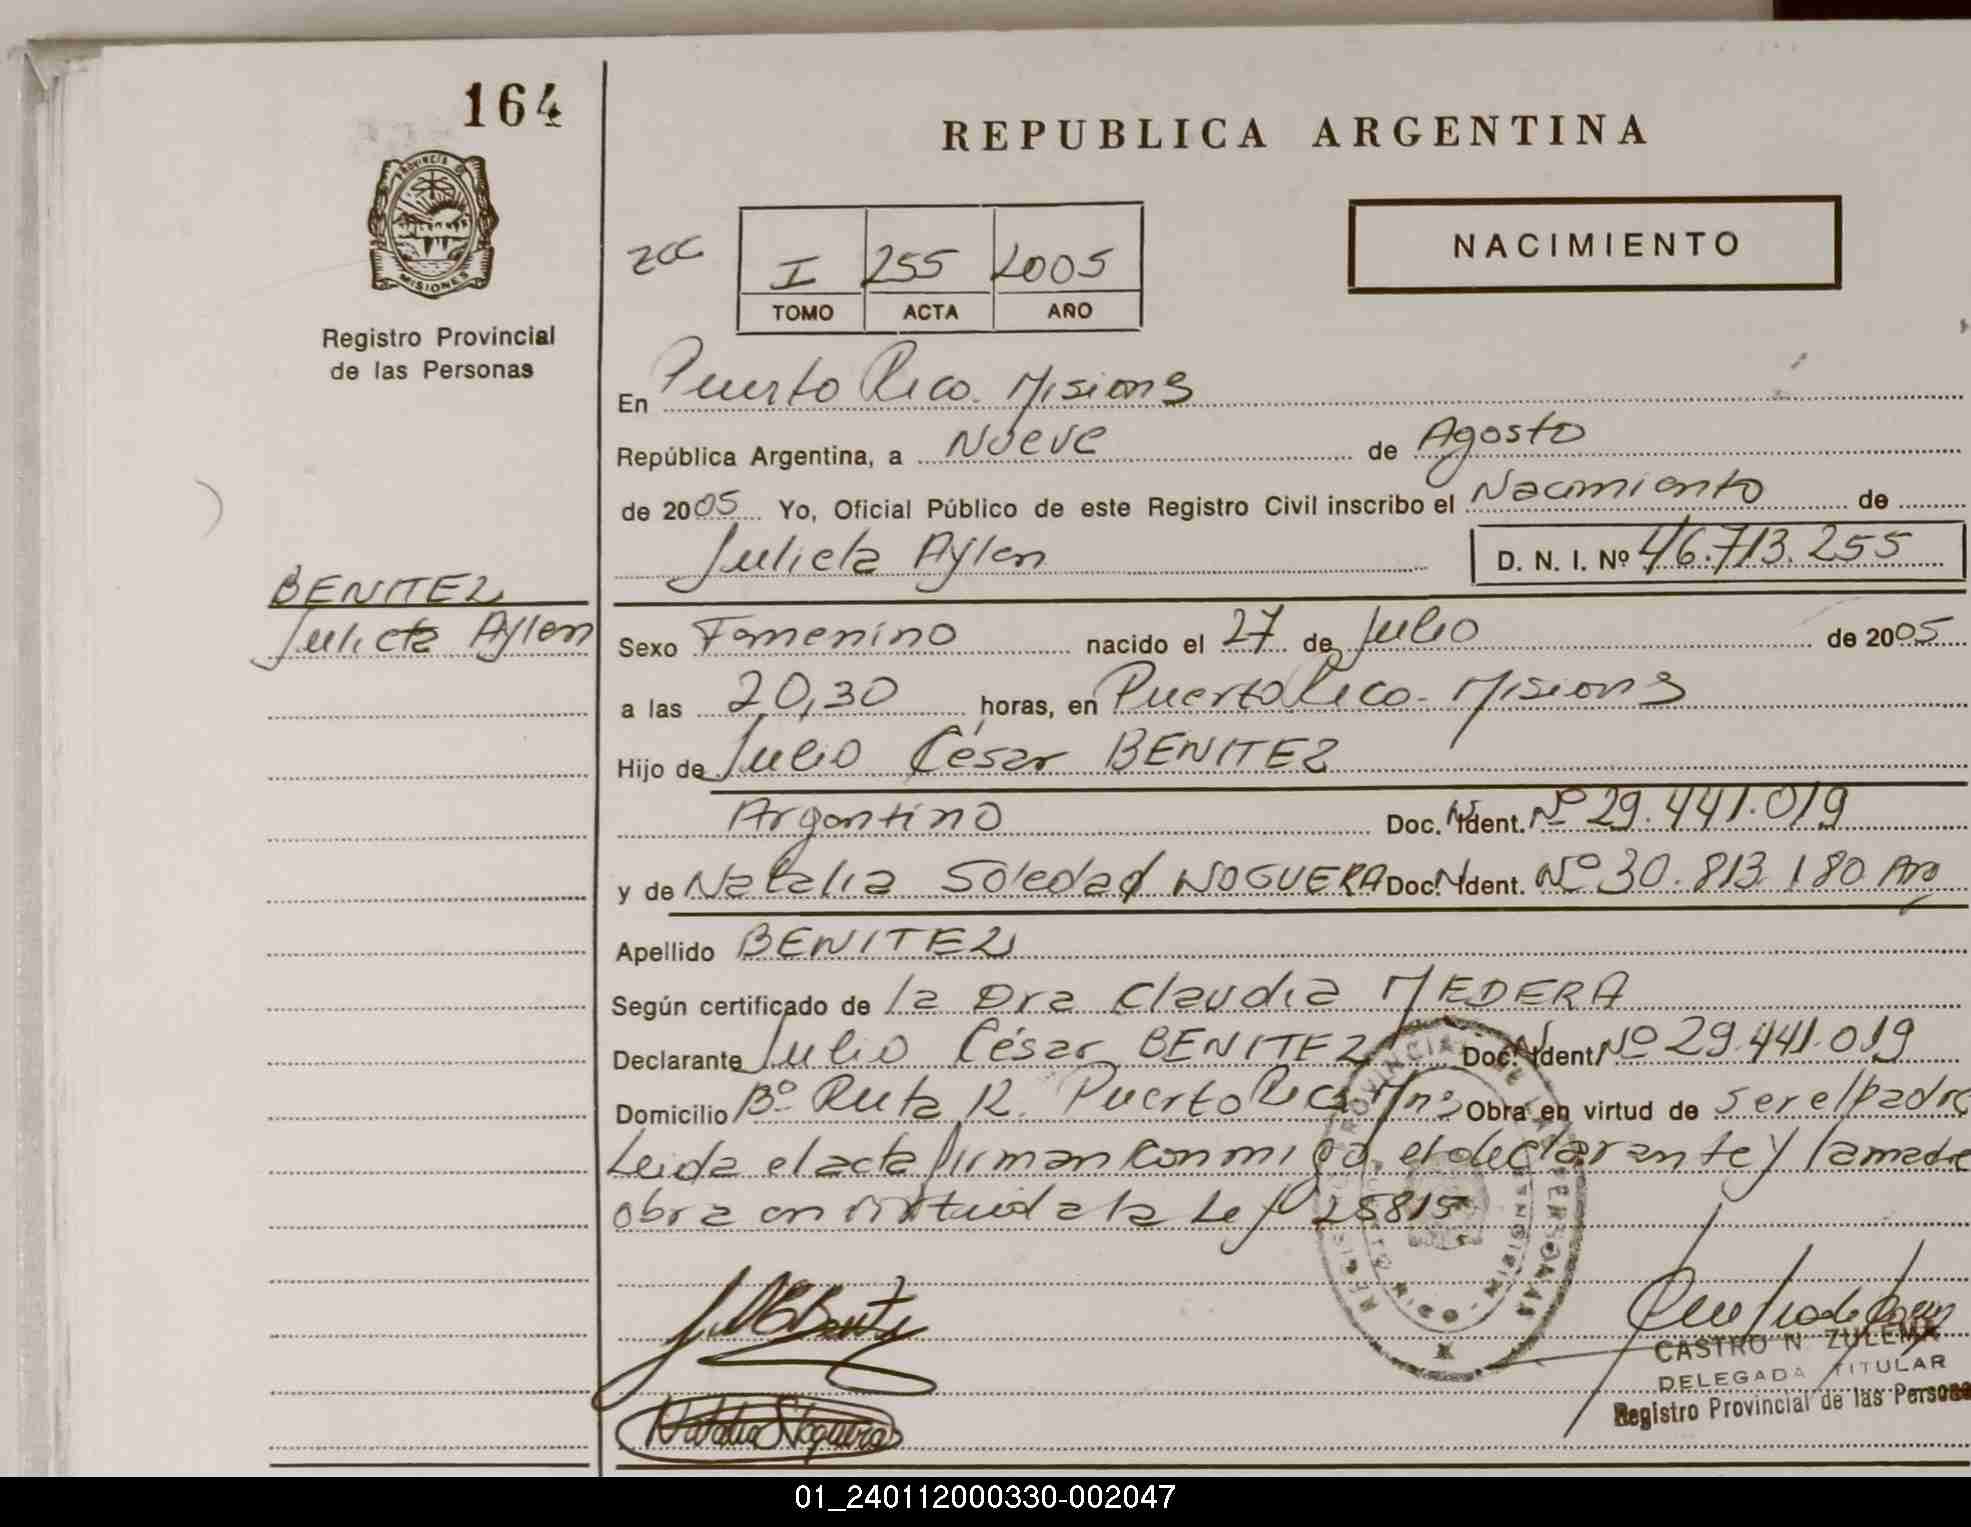 164
REPUBLICA ARGENTINA
PROVINCIA
MISIONES
Registro Provincial
de las Personas
I 255 2005
TOMO ACTA AÑO
NACIMIENTO
En Puerto Rico. Misiones
República Argentina, a Nueve de Agosto
de 2005 Yo, Oficial Público de este Registro Civil inscribo el Nacimiento de
Julieta Aylen D. N. I. Nº 46.713.255
BENITEZ
Julieta Aylen
Sexo Femenino nacido el 27 de Julio de 2005
a las 20,30 horas, en Puerto Rico - Misiones
Hijo de Julio César BENITEZ
Argentino Doc. N. Ident. Nº 29.441.019
y de Natalia Soledad NOGUERA Doc. N. Ident. Nº 30.813.180 Arg
Apellido BENITEZ
Según certificado de la Dra Claudia MEDERA
Declarante Julio César BENITEZ Doc. N. Ident. Nº 29.441.019
Domicilio Bº Ruta 12. Puerto Rico Mnes Obra en virtud de ser el padre
Leida el acta firman conmigo, el declarante y la madre
obra en virtud a la Ley 25815
CASTRO N. ZULEMA
DELEGADA TITULAR
Registro Provincial de las Personas
01_240112000330-002047